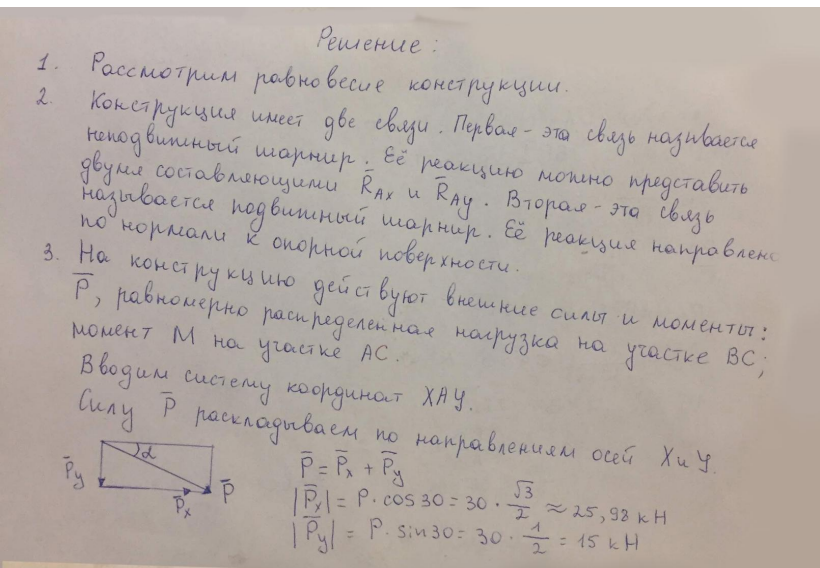 Решение:
1. Рассмотрим равновесие конструкции.
2. Конструкция имеет две связи. Первая - эта связь называется
неподвижный шарнир. Её реакцию можно представить
двумя составляющими R̄Ax и R̄Ay. Вторая - эта связь
называется подвижный шарнир. Её реакция направлена
по нормали к опорной поверхности.
3. На конструкцию действуют внешние силы и моменты:
P̄, равномерно распределенная нагрузка на участке BC;
момент M на участке AC.
Вводим систему координат XAY.
Силу P̄ раскладываем по направлениям осей X и Y.
α
P̄y P̄x P̄
P̄ = P̄x + P̄y
|P̄x| = P · cos30 = 30 · √3/2 ≈ 25,98 кН
|P̄y| = P · sin30 = 30 · 1/2 = 15 кН